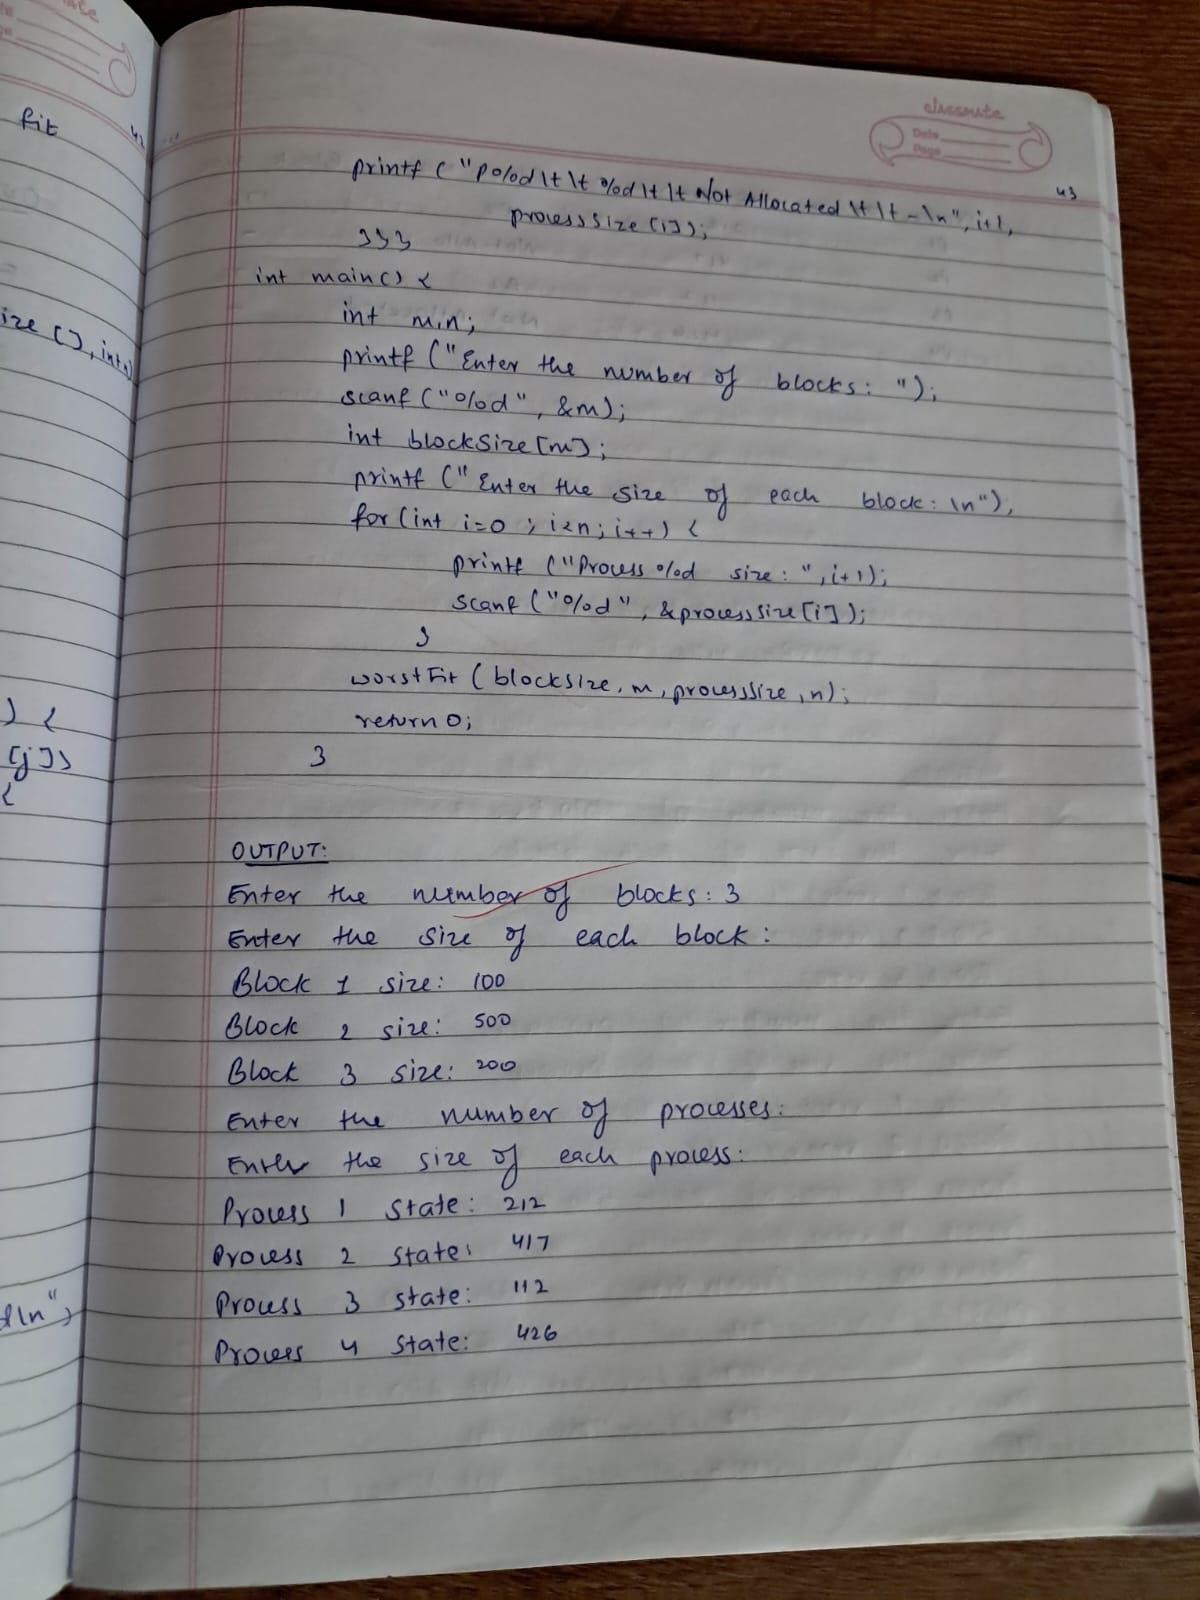 fit
ize [], int n)
) {
[j])
{
classmate
Date
Page
43
printf ("P%d\t\t %d\t\t Not Allocated \t\t-\n", i+1,
processSize [i]);
}}}
int main() {
int m,n;
printf ("Enter the number of blocks: ");
scanf ("%d", &m);
int blockSize[m];
printf ("Enter the size of each block: \n");
for (int i=0; i<n; i++) {
printf ("Process %d size: ", i+1);
scanf ("%d", &processSize[i]);
}
worstFit (blockSize, m, processSize, n);
return 0;
}
OUTPUT:
Enter the number of blocks: 3
Enter the size of each block:
Block 1 size: 100
Block 2 size: 500
Block 3 size: 200
Enter the number of processes:
Enter the size of each process:
Process 1 state: 212
Process 2 state: 417
Process 3 state: 112
Process 4 state: 426